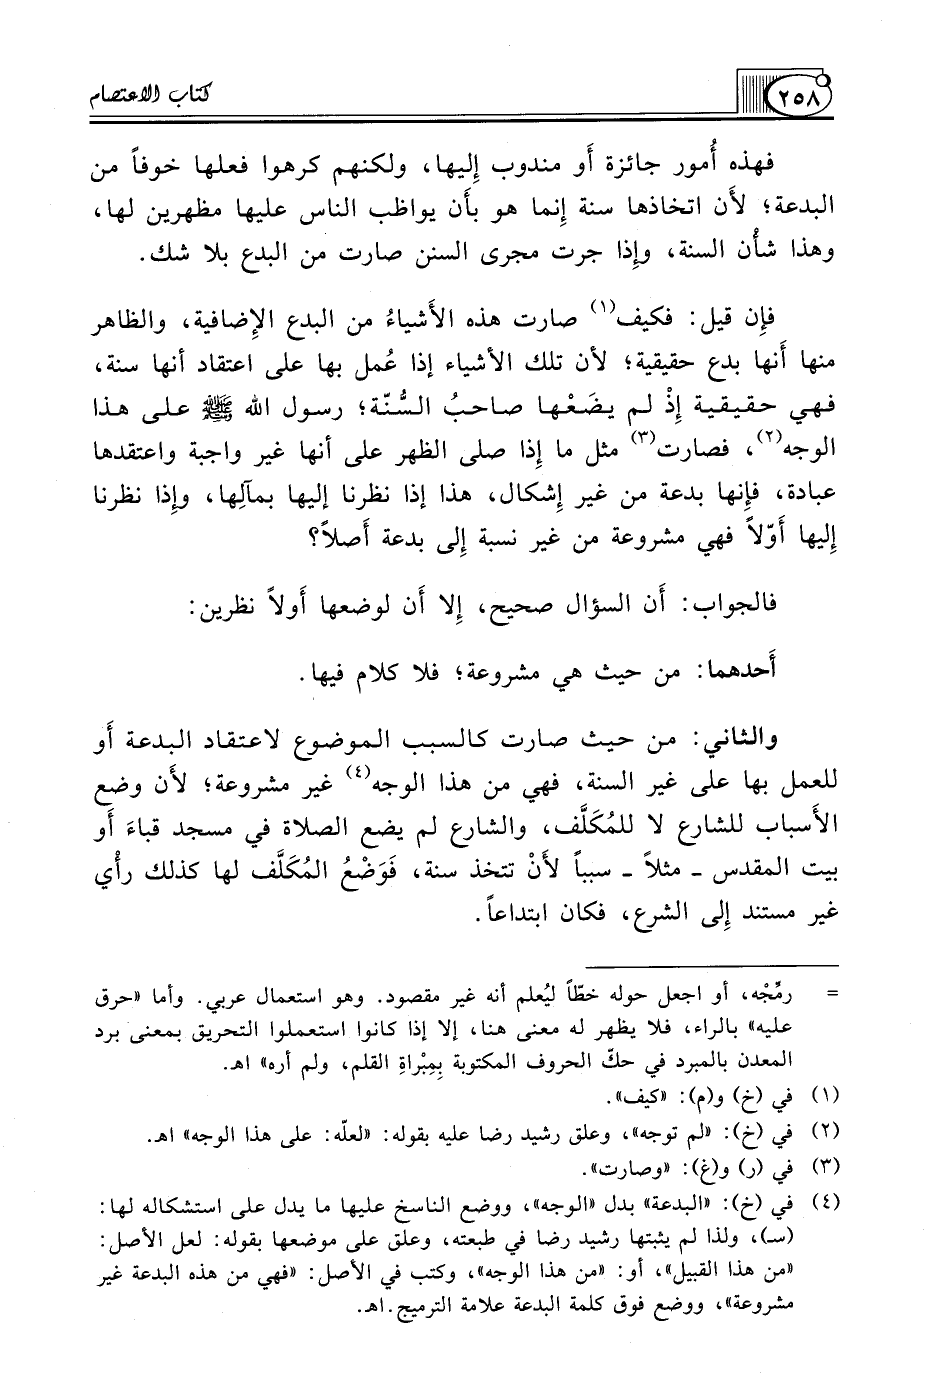 ٢٥٨ كتاب الاعتصام
فهذه أُمور جائزة أَو مندوب إِليها، ولكنهم كرهوا فعلها خوفاً من
البدعة؛ لأَن اتخاذها سنة إِنما هو بأَن يواظب الناس عليها مظهرين لها،
وهذا شأْن السنة، وإِذا جرت مجرى السنن صارت من البدع بلا شك.
فإِن قيل: فكيف(١) صارت هذه الأَشياءُ من البدع الإِضافية، والظاهر
منها أَنها بدع حقيقية؛ لأن تلك الأَشياء إِذا عُمل بها على اعتقاد أنها سنة،
فهي حقيقية إِذْ لم يضَعْها صاحبُ السُّنّة؛ رسول الله ﷺ على هذا
الوجه(٢)، فصارت(٣) مثل ما إِذا صلى الظهر على أنها غير واجبة واعتقدها
عبادة، فإِنها بدعة من غير إِشكال، هذا إِذا نظرنا إِليها بمآلِها، وإِذا نظرنا
إِليها أَوّلاً فهي مشروعة من غير نسبة إِلى بدعة أَصلاً؟
فالجواب: أَن السؤال صحيح، إِلا أَن لوضعها أَولاً نظرين:
أَحدهما: من حيث هي مشروعة؛ فلا كلام فيها.
والثاني: من حيث صارت كالسبب الموضوع لاعتقاد البدعة أَو
للعمل بها على غير السنة، فهي من هذا الوجه(٤) غير مشروعة؛ لأَن وضع
الأَسباب للشارع لا للمُكَلَّف، والشارع لم يضع الصلاة في مسجد قباءَ أَو
بيت المقدس ـ مثلاً ـ سبباً لأَنْ تتخذ سنة، فَوَضْعُ المُكَلَّف لها كذلك رأْي
غير مستند إِلى الشرع، فكان ابتداعاً.
= رمِّجْه، أو اجعل حوله خطّاً ليُعلم أنه غير مقصود. وهو استعمال عربي. وأما «حرق
عليه» بالراء، فلا يظهر له معنى هنا، إلا إذا كانوا استعملوا التحريق بمعنى برد
المعدن بالمبرد في حكّ الحروف المكتوبة بِمِبْراةِ القلم، ولم أره» اهـ.
(١) في (خ) و(م): «كيف».
(٢) في (خ): «لم توجه»، وعلق رشيد رضا عليه بقوله: «لعلّه: على هذا الوجه» اهـ.
(٣) في (ر) و(غ): «وصارت».
(٤) في (خ): «البدعة» بدل «الوجه»، ووضع الناسخ عليها ما يدل على استشكاله لها:
(سـ)، ولذا لم يثبتها رشيد رضا في طبعته، وعلق على موضعها بقوله: لعل الأصل:
«من هذا القبيل»، أو: «من هذا الوجه»، وكتب في الأصل: «فهي من هذه البدعة غير
مشروعة»، ووضع فوق كلمة البدعة علامة الترميج.اهـ.